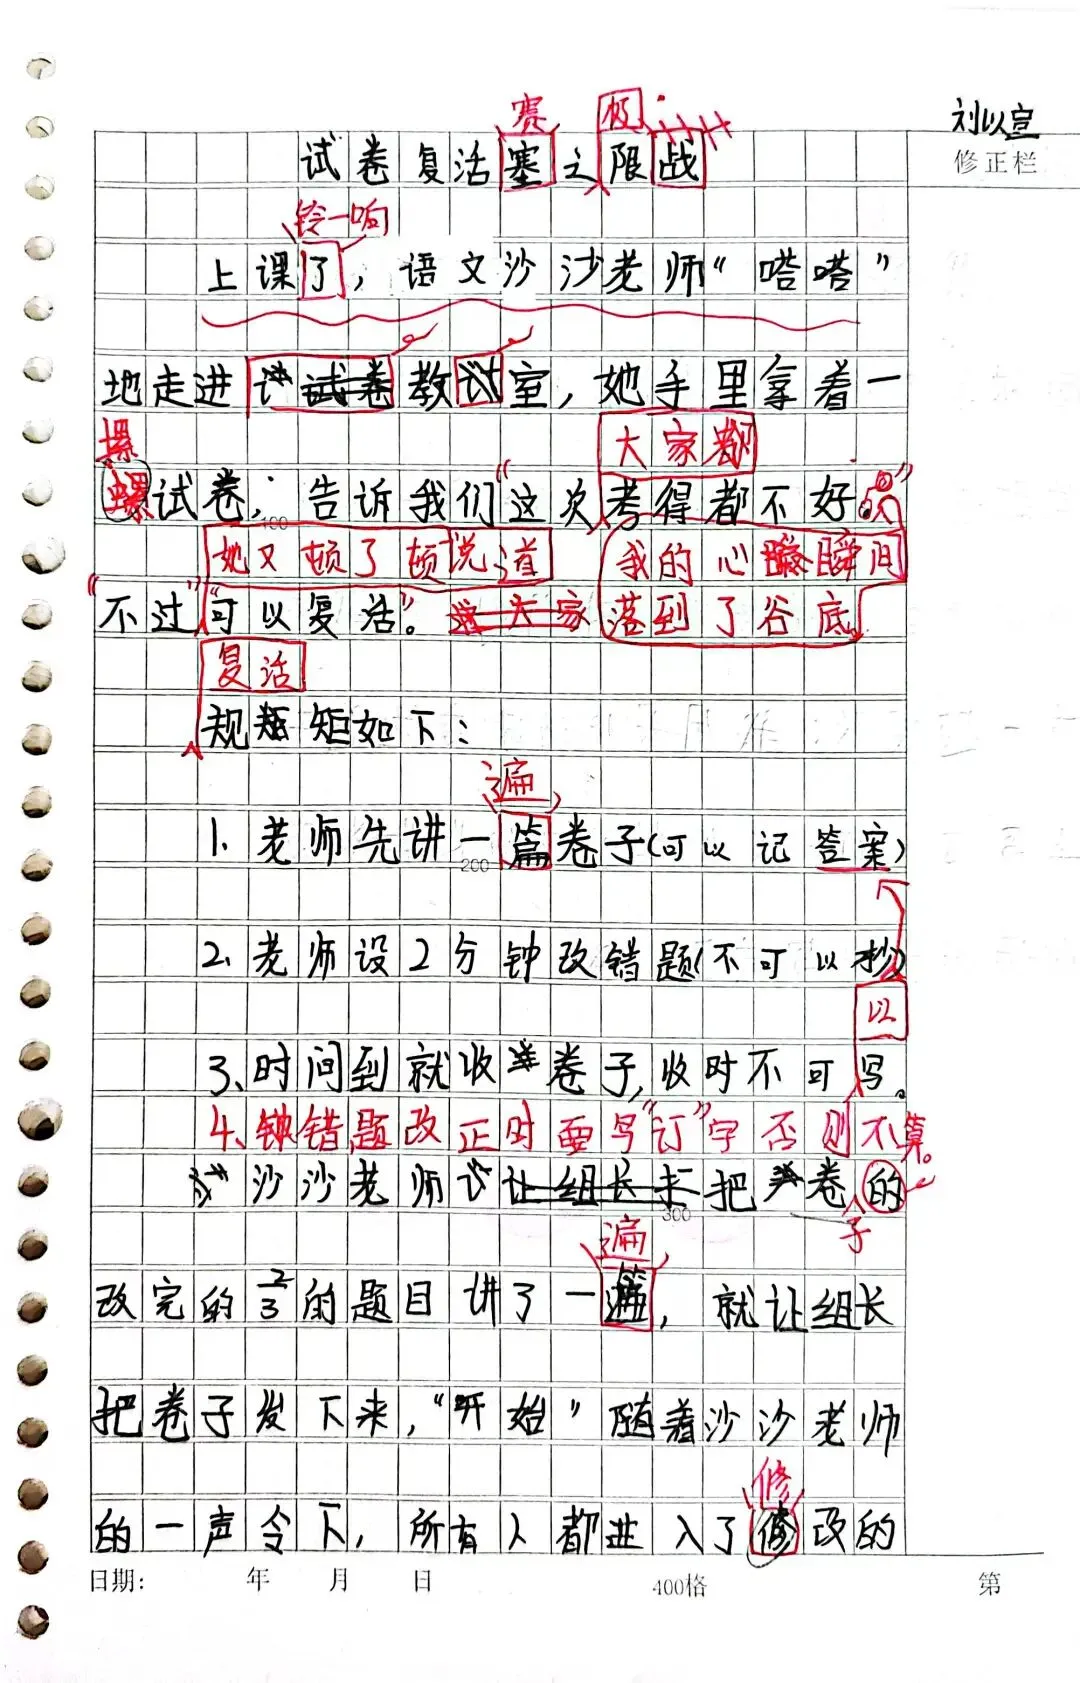 赛 极
刘以宣
试卷复活塞之限战
修正栏
铃一响
上课了，语文沙沙老师“嗒嗒”
地走进试卷教室，她手里拿着一
大家都
摞
试卷，告诉我们“这次考得都不好。”
100
她又顿了顿说道 我的心瞬间
“不过”“可以复活”。大家 落到了谷底。
复活
规矩如下：
遍
1. 老师先讲一篇卷子(可以记答案)
200
2. 老师设2分钟改错题(不可以抄)
以
3、时间到就收卷子,收时不可写。
4、错题改正时要写“订”字否则不算。
沙沙老师让组长把卷的
300
子
遍
改完的2/3的题目讲了一，就让组长
把卷子发下来，“开始”随着沙沙老师
修
的一声令下，所有人都进入了修改的
日期: 年 月 日 400格 第